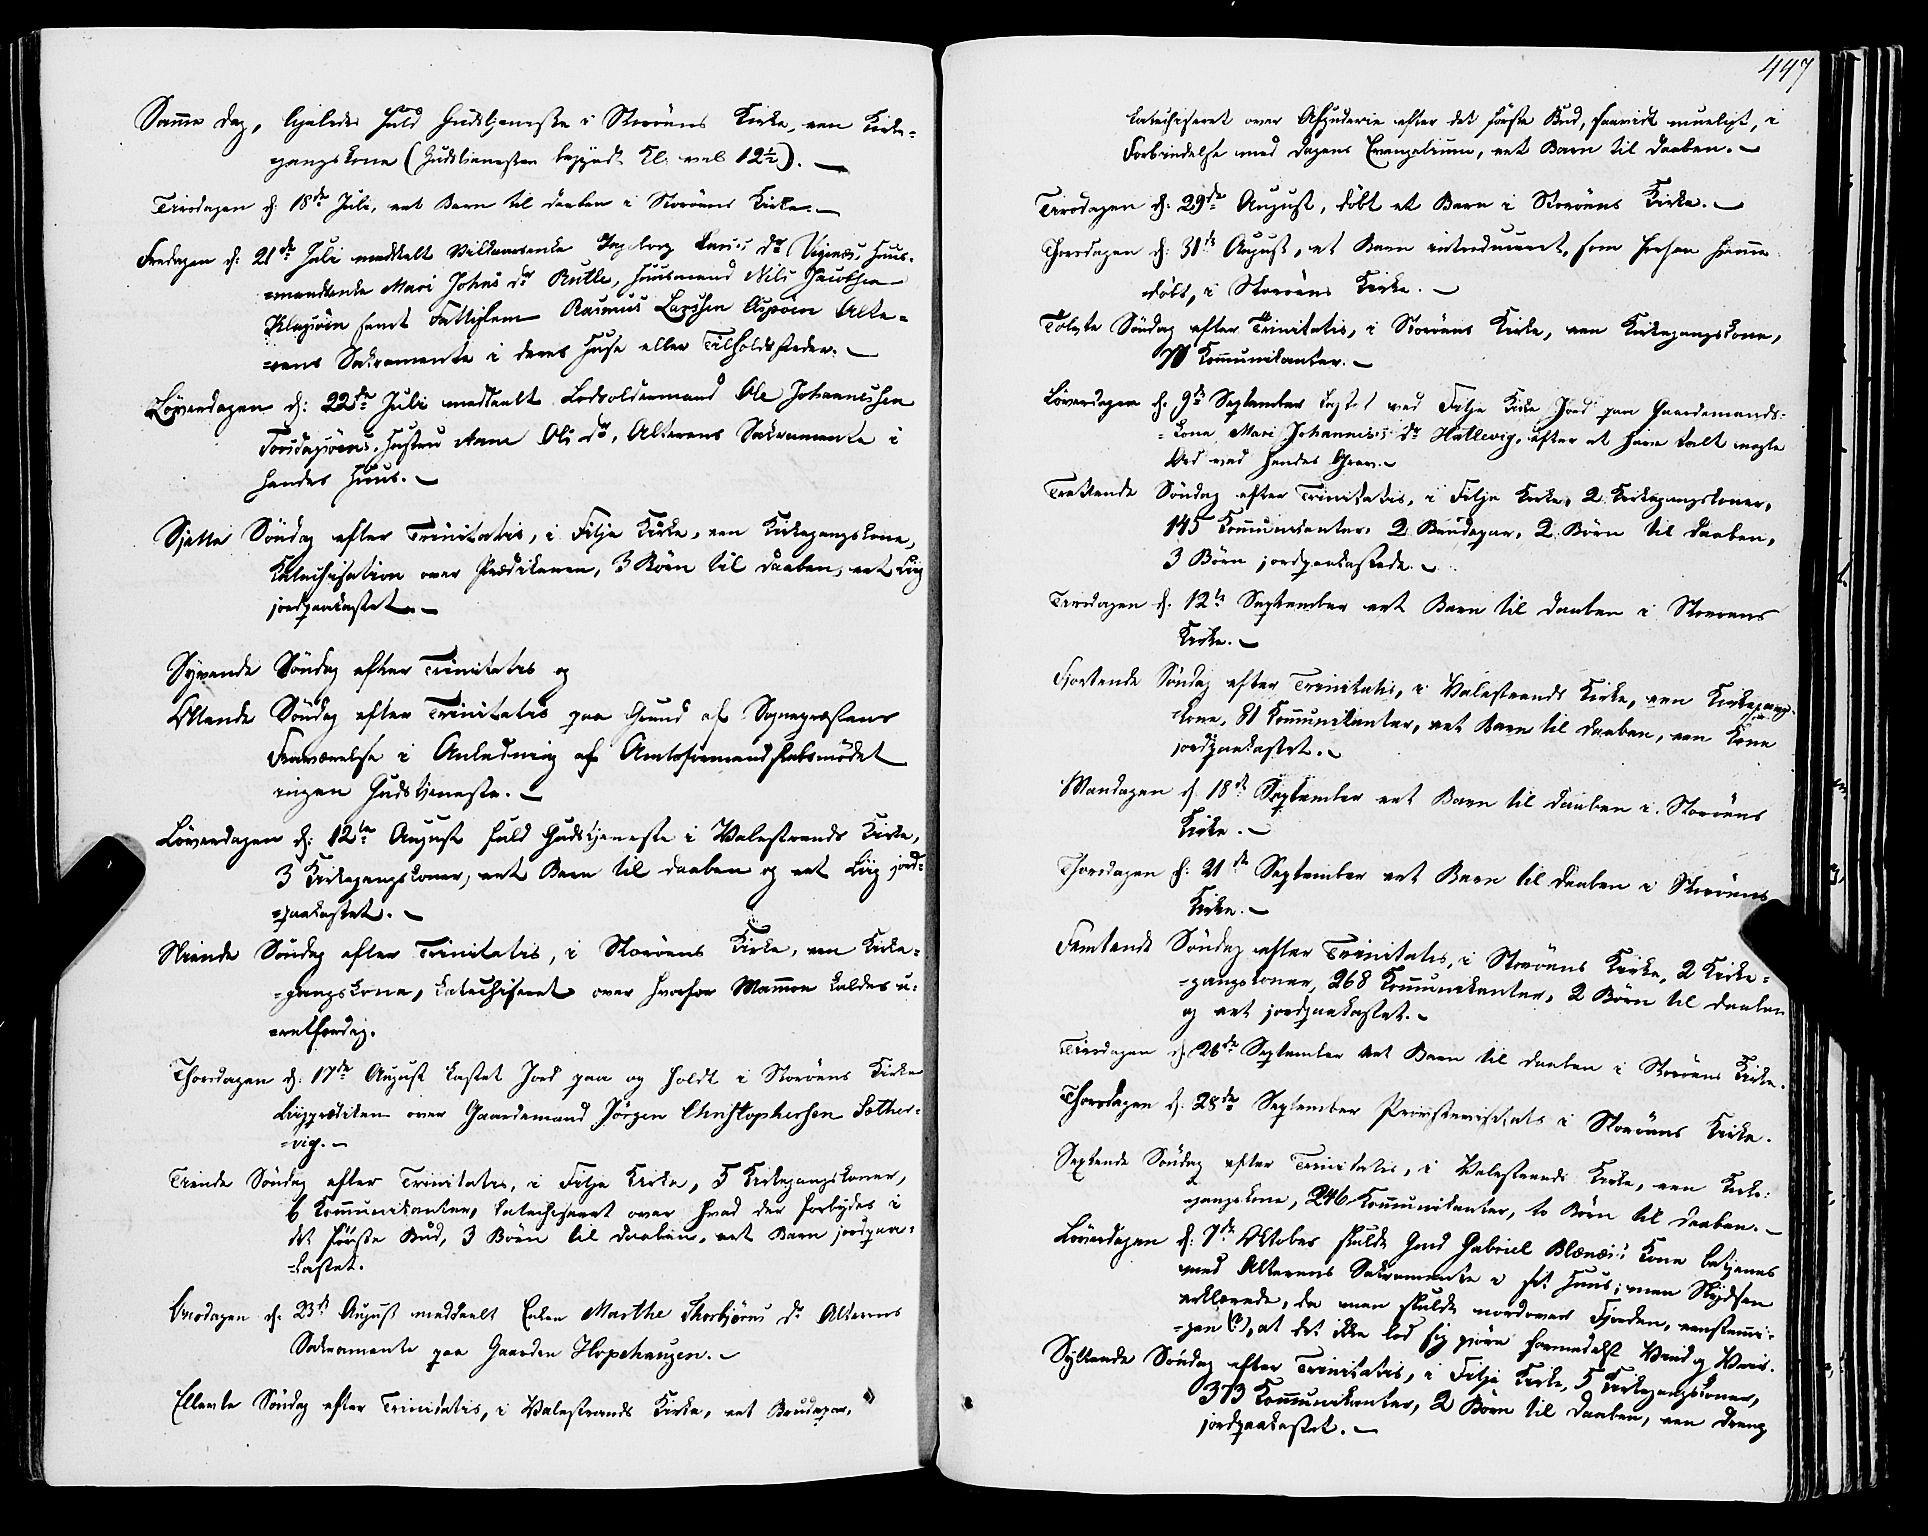 Samme Dag, ligeledes holdt Gudstjeneste i Storöens Kirke, een Kirke-
gangskone (Gudstienesten begyndt Kl. vel 12½). –
Tirsdagen d: 18de Juli, eet Barn til Daaben i Storöens Kirke. –
Fredagen d: 21de Juli meddeelt Vilkaarsenke Ingeborg Larsd:r Vignæs, Huus-
=mandsenke Mari Johns d:r Rutle, Huusmand Nils Jacobsen
samt Fattiglem Rasmus Larssen Alte=
=rens Sakramente i deres Huse eller Tilholdssteder. –
Löverdagen d: 22de Juli meddeelt Lodsoldermand Ole Johannessen
Hustru Anne Ols d:r, Alterens Sakramente i
hendes Huus. –
Sjette Söndag efter Trinitatis, i Fitje Kirke, een Kirkegangskone,
Katechisation over Prædikenen, 3 Börn til Daaben, eet Liig
jordpaakastet. –
Syvende Söndag efter Trinitatis og
Ottende Söndag efter Trinitatis paa Grund af Sognepræstens
Fraværelse i Anledning af Amtsformandskabsmödet
ingen Gudstjeneste. –
Löverdagen d: 12te August holdt Gudstjeneste i Valestrands Kirke,
3 Kirkegangskoner, eet Barn til Daaben og eet Liig jord=
=paakastet. –
Niende Söndag efter Trinitatis, i Storöens Kirke, een Kirke=
=gangskone, katechiseret over hvorfor Mammon kaldes u=
=retfærdig.
Thorsdagen d: 17de August kastet Jord paa og holdt i Storöens Kirke
Liigprædiken over Gaardemand Jörgen Christophersen Sæther=
=vig. –
Tiende Söndag efter Trinitatis, i Fitje Kirke, 5 Kirkegangskoner,
6 Kommunikanter, katechiseret over hvad der forbydes i
det förste Bud, 3 Börn til Daaben, eet Barn jordpaa=
=kastet.
Onsdagen d: 23de August meddeelt Enken Marthe Thorbjörns d:r Alterens
Sakramente paa Gaarden Hopehaugen. –
Ellevte Söndag efter Trinitatis, i Valestrands Kirke, eet Brudepar,
447
katechiseret over Afguderie efter det förste Bud, saavidt mueligt, i
Forbindelse med Dagens Evangelium, eet Barn til Daaben. –
Tirsdagen d: 29de August, döbt et Barn i Storöens Kirke. –
Thorsdagen d: 31te August, et Barn introduceret, som forhen hjemme
döbt, i Storöens Kirke. –
Tolvte Söndag efter Trinitatis, i Storöens Kirke, een Kirkegangskone,
Kommunikanter. –
Löverdagen d. 9de September kastet ved Fitje Kirke Jord paa Gaardemands=
=kone Mari Johannes d:r Hatlevig, efter at have talt nogle
Ord ved hendes Grav. –
Trettende Söndag efter Trinitatis, i Fitje Kirke, 2 Kirkegangskoner,
145 Kommunikanter, 2 Brudepar, 2 Börn til Daaben,
3 Börn jordpaakastede. –
Tirsdagen d. 12te September eet Barn til Daaben i Storöens
Kirke. –
Fjortende Söndag efter Trinitatis, i Valestrands Kirke, een Kirkegangs=
=kone, 81 Kommunikanter, eet Barn til Daaben, een Kone
jordpaakastet. –
Mandagen d. 18de September eet Barn til Daaben i Storöens
Kirke. –
Thorsdagen d: 21de September eet Barn til Daaben i Storöens
Kirke. –
Femtende Söndag efter Trinitatis, i Storöens Kirke, 2 Kirke=
=gangskoner, 268 Kommunikanter, 2 Börn til Daaben
og eet jordpaakastet. –
Tirsdagen d. 26de September eet Barn til Daaben i Storöens Kirke.
Thorsdagen d. 28de September Provstevisitats i Storöens Kirke.
Sextende Söndag efter Trinitatis, i Valestrands Kirke, een Kirke=
gangskone, 246 Kommunikanter, to Börn til Daaben. –
Löverdagen d: 7de Oktober skulde Gmd Gabriel Blænæs's Kone betjenes
med Alterens Sakramente i sit Huus; men Skydsen
erklærede, da man skulde nordover Fjorden, eenstemmi=
=gen (?), at det ikke lod sig gjöre formedelst Vind og Veir.
Syttende Söndag efter Trinitatis, i Fitje Kirke, 5 Kirkegangskoner,
373 Kommunikanter, 2 Börn til Daaben, een Dreng
jordpaakastet. –